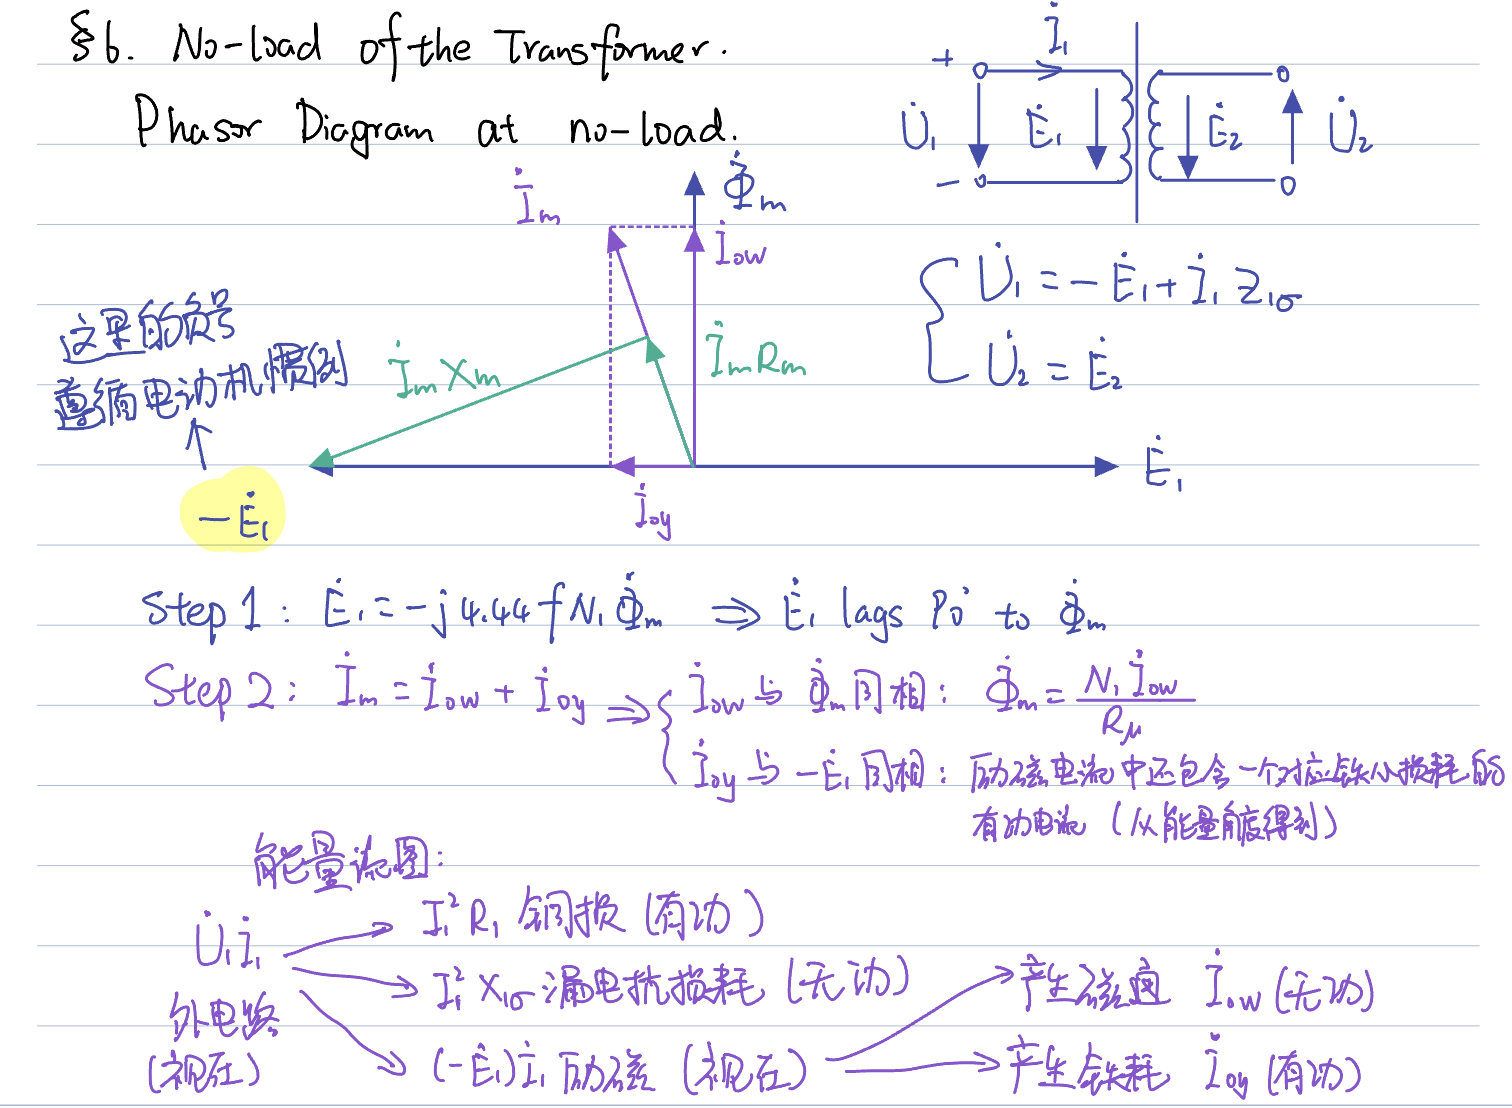 §6. No-load of the Transformer.
Phasor Diagram at no-load.
İ₁
+
U̇₁ Ė₁ Ė₂ U̇₂
-
Φ̇m
İm
İow
U̇₁ = -Ė₁ + İ₁ Z₁σ
U̇₂ = Ė₂
这里的负号
遵循电动机惯例
İmXm
İmRm
Ė₁
-Ė₁
İoy
Step 1: Ė₁ = -j4.44fN₁Φ̇m ⇒ Ė₁ lags 90° to Φ̇m
Step 2: İm = İow + İoy ⇒ { İow与Φ̇m同相: Φ̇m = N₁İow / Rμ
İoy与-Ė₁同相: 励磁电流中还包含一个对应铁心损耗的
有功电流 (从能量角度得到)
能量流图:
U̇₁İ₁ → I₁²R₁ 铜损 (有功)
→ I₁²X₁σ 漏电抗损耗 (无功)
外电路
(视在)
→ (-Ė₁)İ₁ 励磁 (视在)
→ 产生磁通 İow (无功)
→ 产生铁耗 İoy (有功)